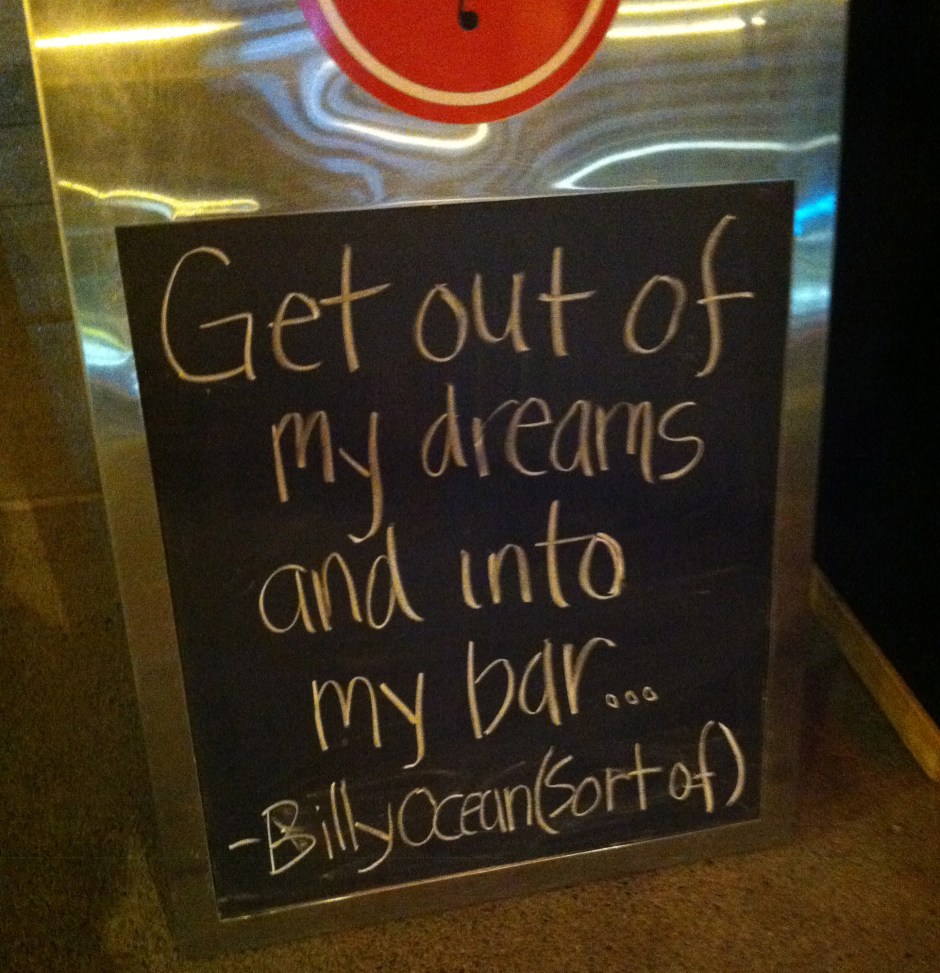 Get out of
my dreams
and into
my bar...
-Billy Ocean (Sort of)